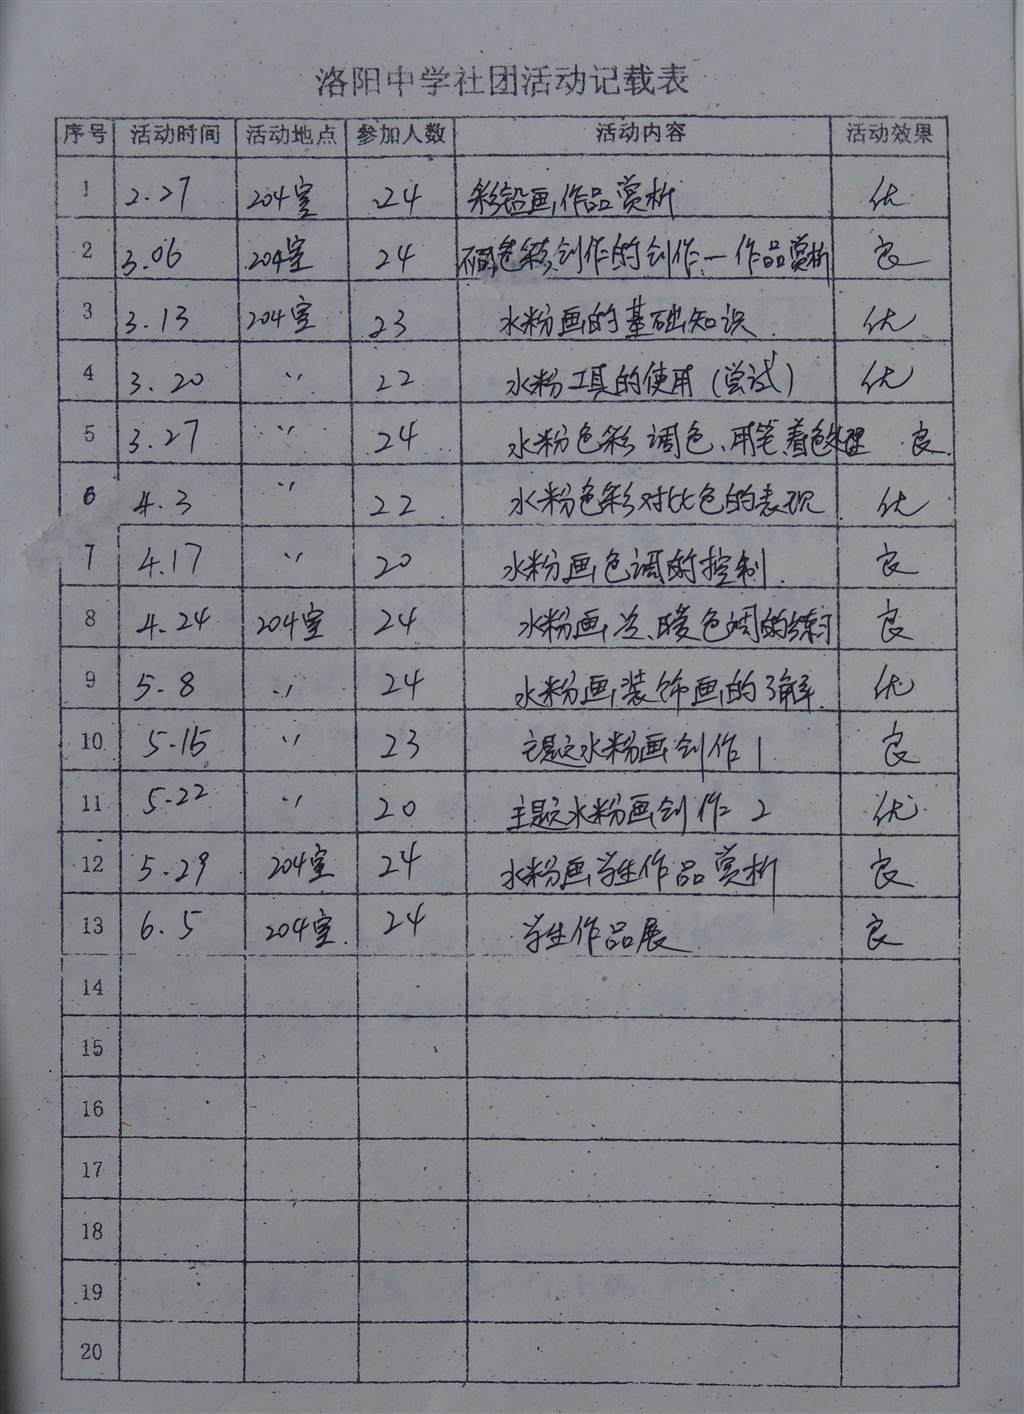 洛阳中学社团活动记载表
序号 活动时间 活动地点 参加人数 活动内容 活动效果
1 2.27 204室 24 彩铅画作品赏析 优
2 3.06 204室 24 色彩创作的创作、一作品赏析 良
3 3.13 204室 23 水粉画的基础知识 优
4 3.20 〃 22 水粉工具的使用(尝试) 优
5 3.27 〃 24 水粉色彩调色、用笔、着色处理 良
6 4.3 〃 22 水粉色彩对比色的表现 优
7 4.17 〃 20 水粉画色调的控制 良
8 4.24 204室 24 水粉画冷、暖色调的练习 良
9 5.8 〃 24 水粉画装饰画的了解 优
10 5.15 〃 23 主题水粉画创作1 良
11 5.22 〃 20 主题水粉画创作2 优
12 5.29 204室 24 水粉画学生作品赏析 良
13 6.5 204室 24 学生作品展 良
14
15
16
17
18
19
20